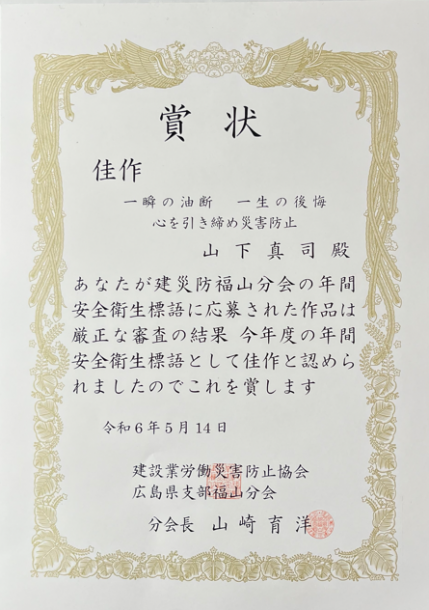 賞状
佳作
一瞬の油断　一生の後悔
心を引き締め災害防止
山下真司殿
あなたが建災防福山分会の年間
安全衛生標語に応募された作品は
厳正な審査の結果 今年度の年間
安全衛生標語として佳作と認めら
れましたのでこれを賞します
令和6年5月14日
建設業労働災害防止協会
広島県支部福山分会
分会長 山崎育洋